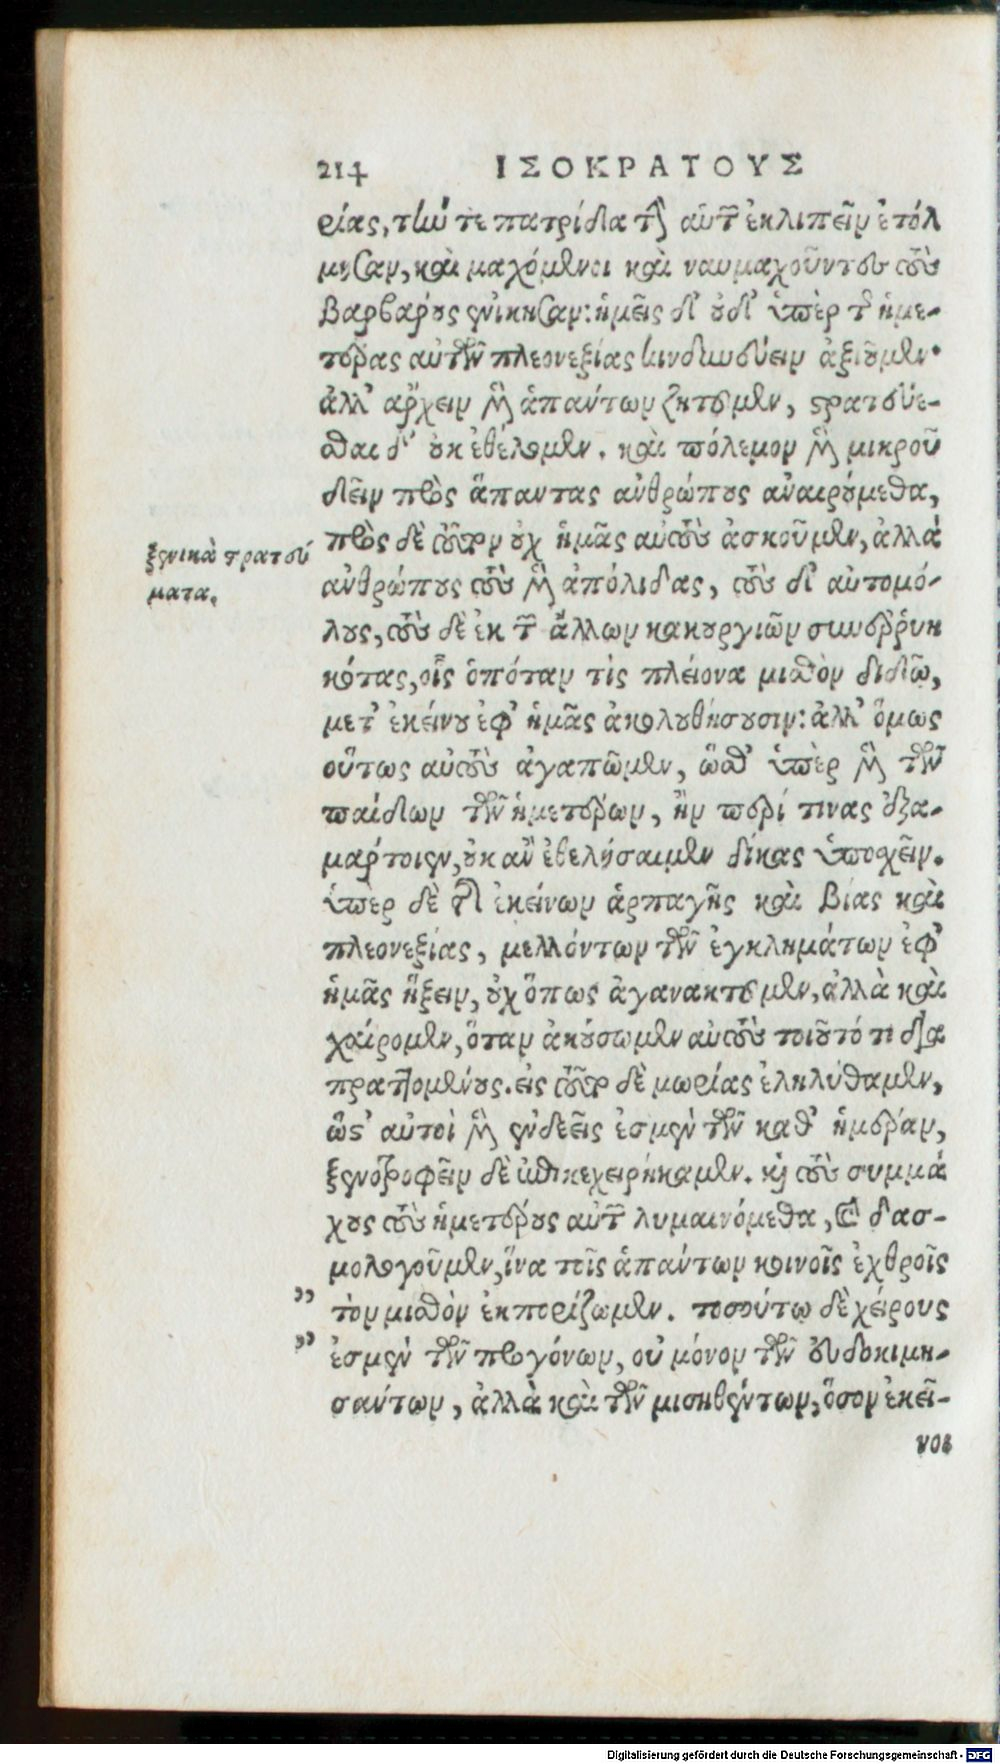 214 ΙΣΟΚΡΑΤΟΥΣ
ρίας, τήν τε πατρίδα τὴν αὑτῶν ἐκλιπεῖν ἐτόλ
μησαν, καὶ μαχόμενοι καὶ ναυμαχοῦντες τοὺς
βαρβάρους ἐνίκησαν: ἡμεῖς δ' οὐδ' ὑπὲρ τῆς ἡμε-
τέρας αὐτῶν πλεονεξίας κινδυνεύειν ἀξιοῦμεν·
ἀλλ' ἄρχειν μὲν ἁπάντων ζητοῦμεν, στρατεύε-
σθαι δ' οὐκ ἐθέλομεν. καὶ πόλεμον μὲν μικροῦ
δεῖν πρὸς ἅπαντας ἀνθρώπους ἀναιρούμεθα,
πρὸς δὲ τοῦτον οὐχ ἡμᾶς αὐτοὺς ἀσκοῦμεν, ἀλλά
ξενικὰ στρατεύ
ματα.
ἀνθρώπους τοὺς μὲν ἀπόλιδας, τοὺς δ' αὐτομό-
λους, τοὺς δὲ ἐκ τῶν ἄλλων κακουργιῶν συνερρυη
κότας, οἷς ὁπόταν τὶς πλείονα μισθὸν διδῶ,
μετ' ἐκείνου ἐφ' ἡμᾶς ἀκολουθήσουσιν: ἀλλ' ὅμως
οὕτως αὐτοὺς ἀγαπῶμεν, ὥσθ' ὑπὲρ μὲν τῶν
παίδων τῶν ἡμετέρων, ἢν περί τινας ἐξα-
μάρτοιεν, οὐκ ἂν ἐθελήσαιμεν δίκας ὑποσχεῖν.
ὑπὲρ δὲ τῆς ἐκείνων ἁρπαγῆς καὶ βίας καὶ
πλεονεξίας, μελλόντων τῶν ἐγκλημάτων ἐφ'
ἡμᾶς ἥξειν, οὐχ ὅπως ἀγανακτοῦμεν, ἀλλὰ καὶ
χαίρομεν, ὅταν ἀκούσωμεν αὐτοὺς τοιοῦτό τι δια
πραττομένους. εἰς τοῦτο δὲ μωρίας ἐληλύθαμεν,
ὥστ' αὐτοὶ μὲν ἐνδεεῖς ἐσμὲν τῶν καθ' ἡμέραν,
ξενοτροφεῖν δὲ ἐπικεχειρήκαμεν. καὶ τοὺς συμμά
χους τοὺς ἡμετέρους αὐτῶν λυμαινόμεθα, καὶ δασ-
μολογοῦμεν, ἵνα τοῖς ἁπάντων κοινοῖς ἐχθροῖς
" τὸν μισθὸν ἐκπορίζωμεν. τοσούτῳ δὲ χείρους
" ἐσμὲν τῶν προγόνων, οὐ μόνον τῶν εὐδοκιμη-
σάντων, ἀλλὰ καὶ τῶν μισηθέντων, ὅσον ἐκεῖ-
νοι
Digitalisierung gefördert durch die Deutsche Forschungsgemeinschaft - DFG